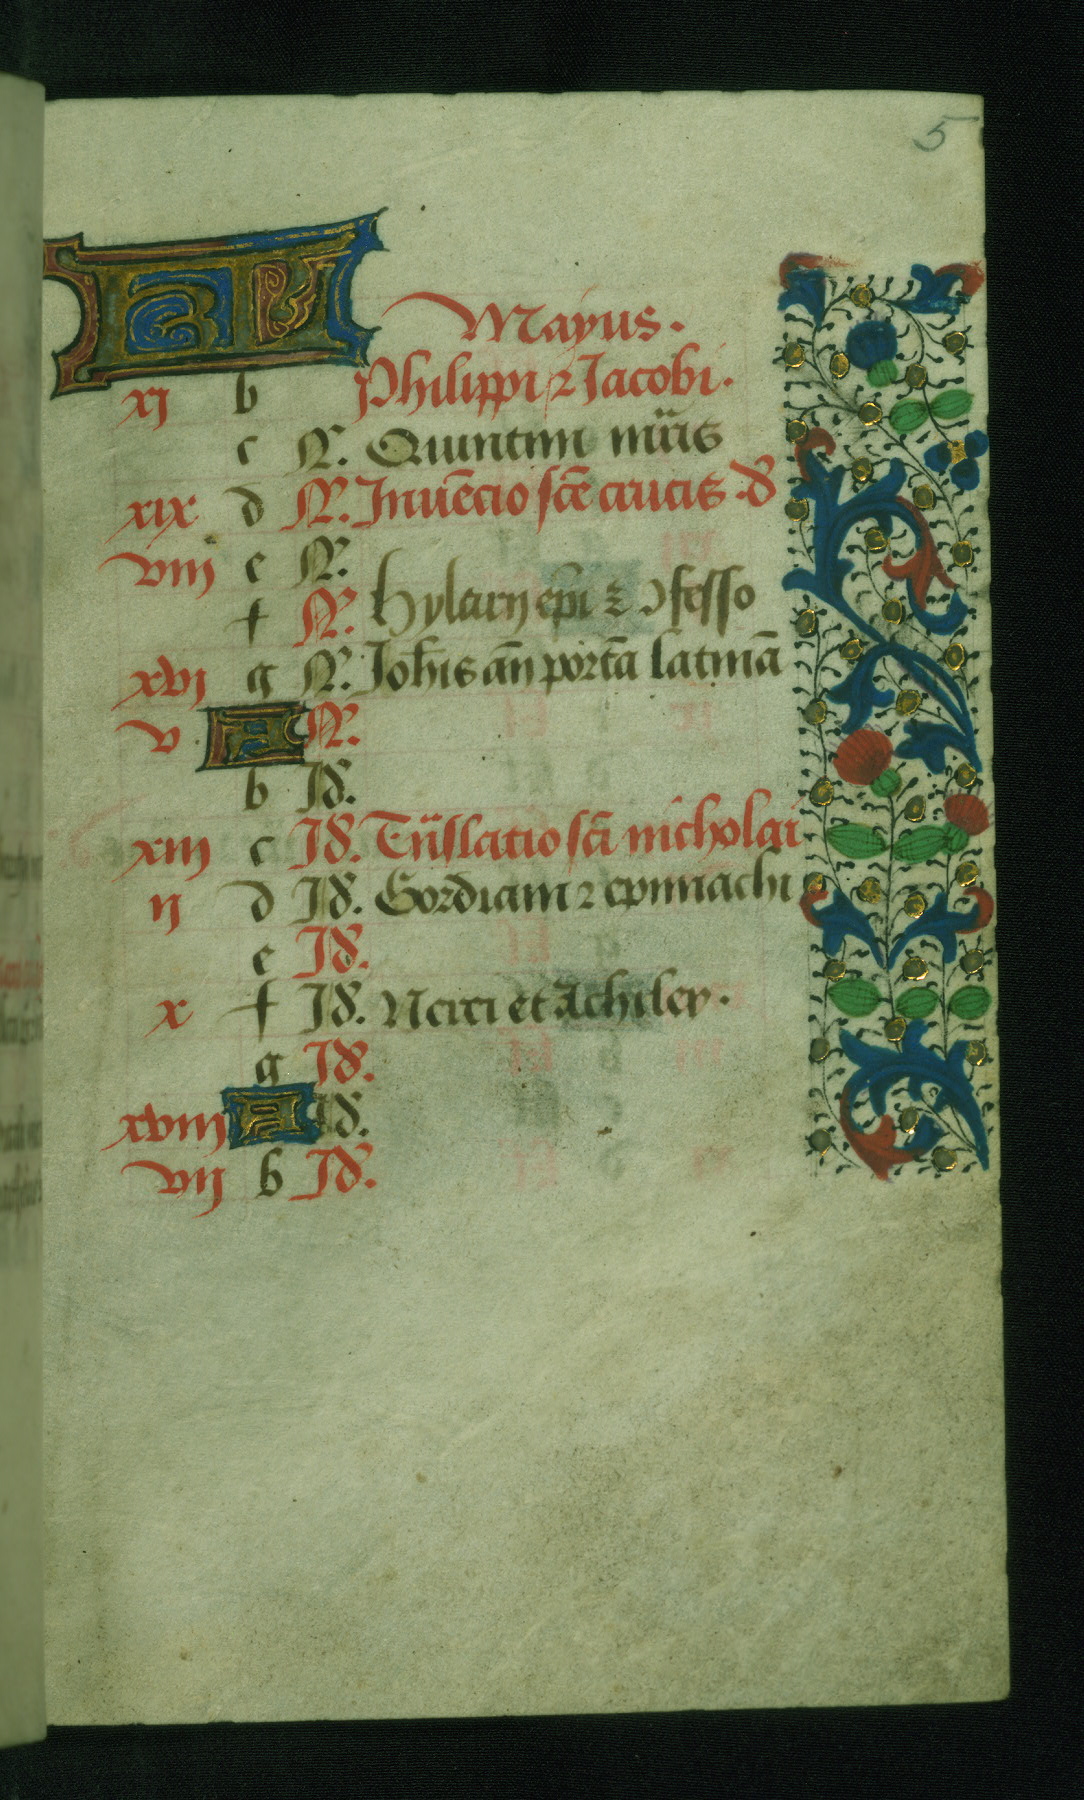 5
KL Mayus.
xj b Philippi ⁊ Jacobi.
c N. Quintini mr̄is
xix d N. Inuēcio sc̄e crucis .d
viij e N.
f N. Hylarij ep̄i ⁊ ꝯfesso
xvj g N. Joh̄is an̄ portā latinā
v A N.
b Id.
xiij c Id. Trāslatio sc̄i nicholai
ij d Id. Gordiani ⁊ epimachi
e Id.
x f Id. Nerei et Achilev.
g Id.
xviij A Id.
vij b Id.